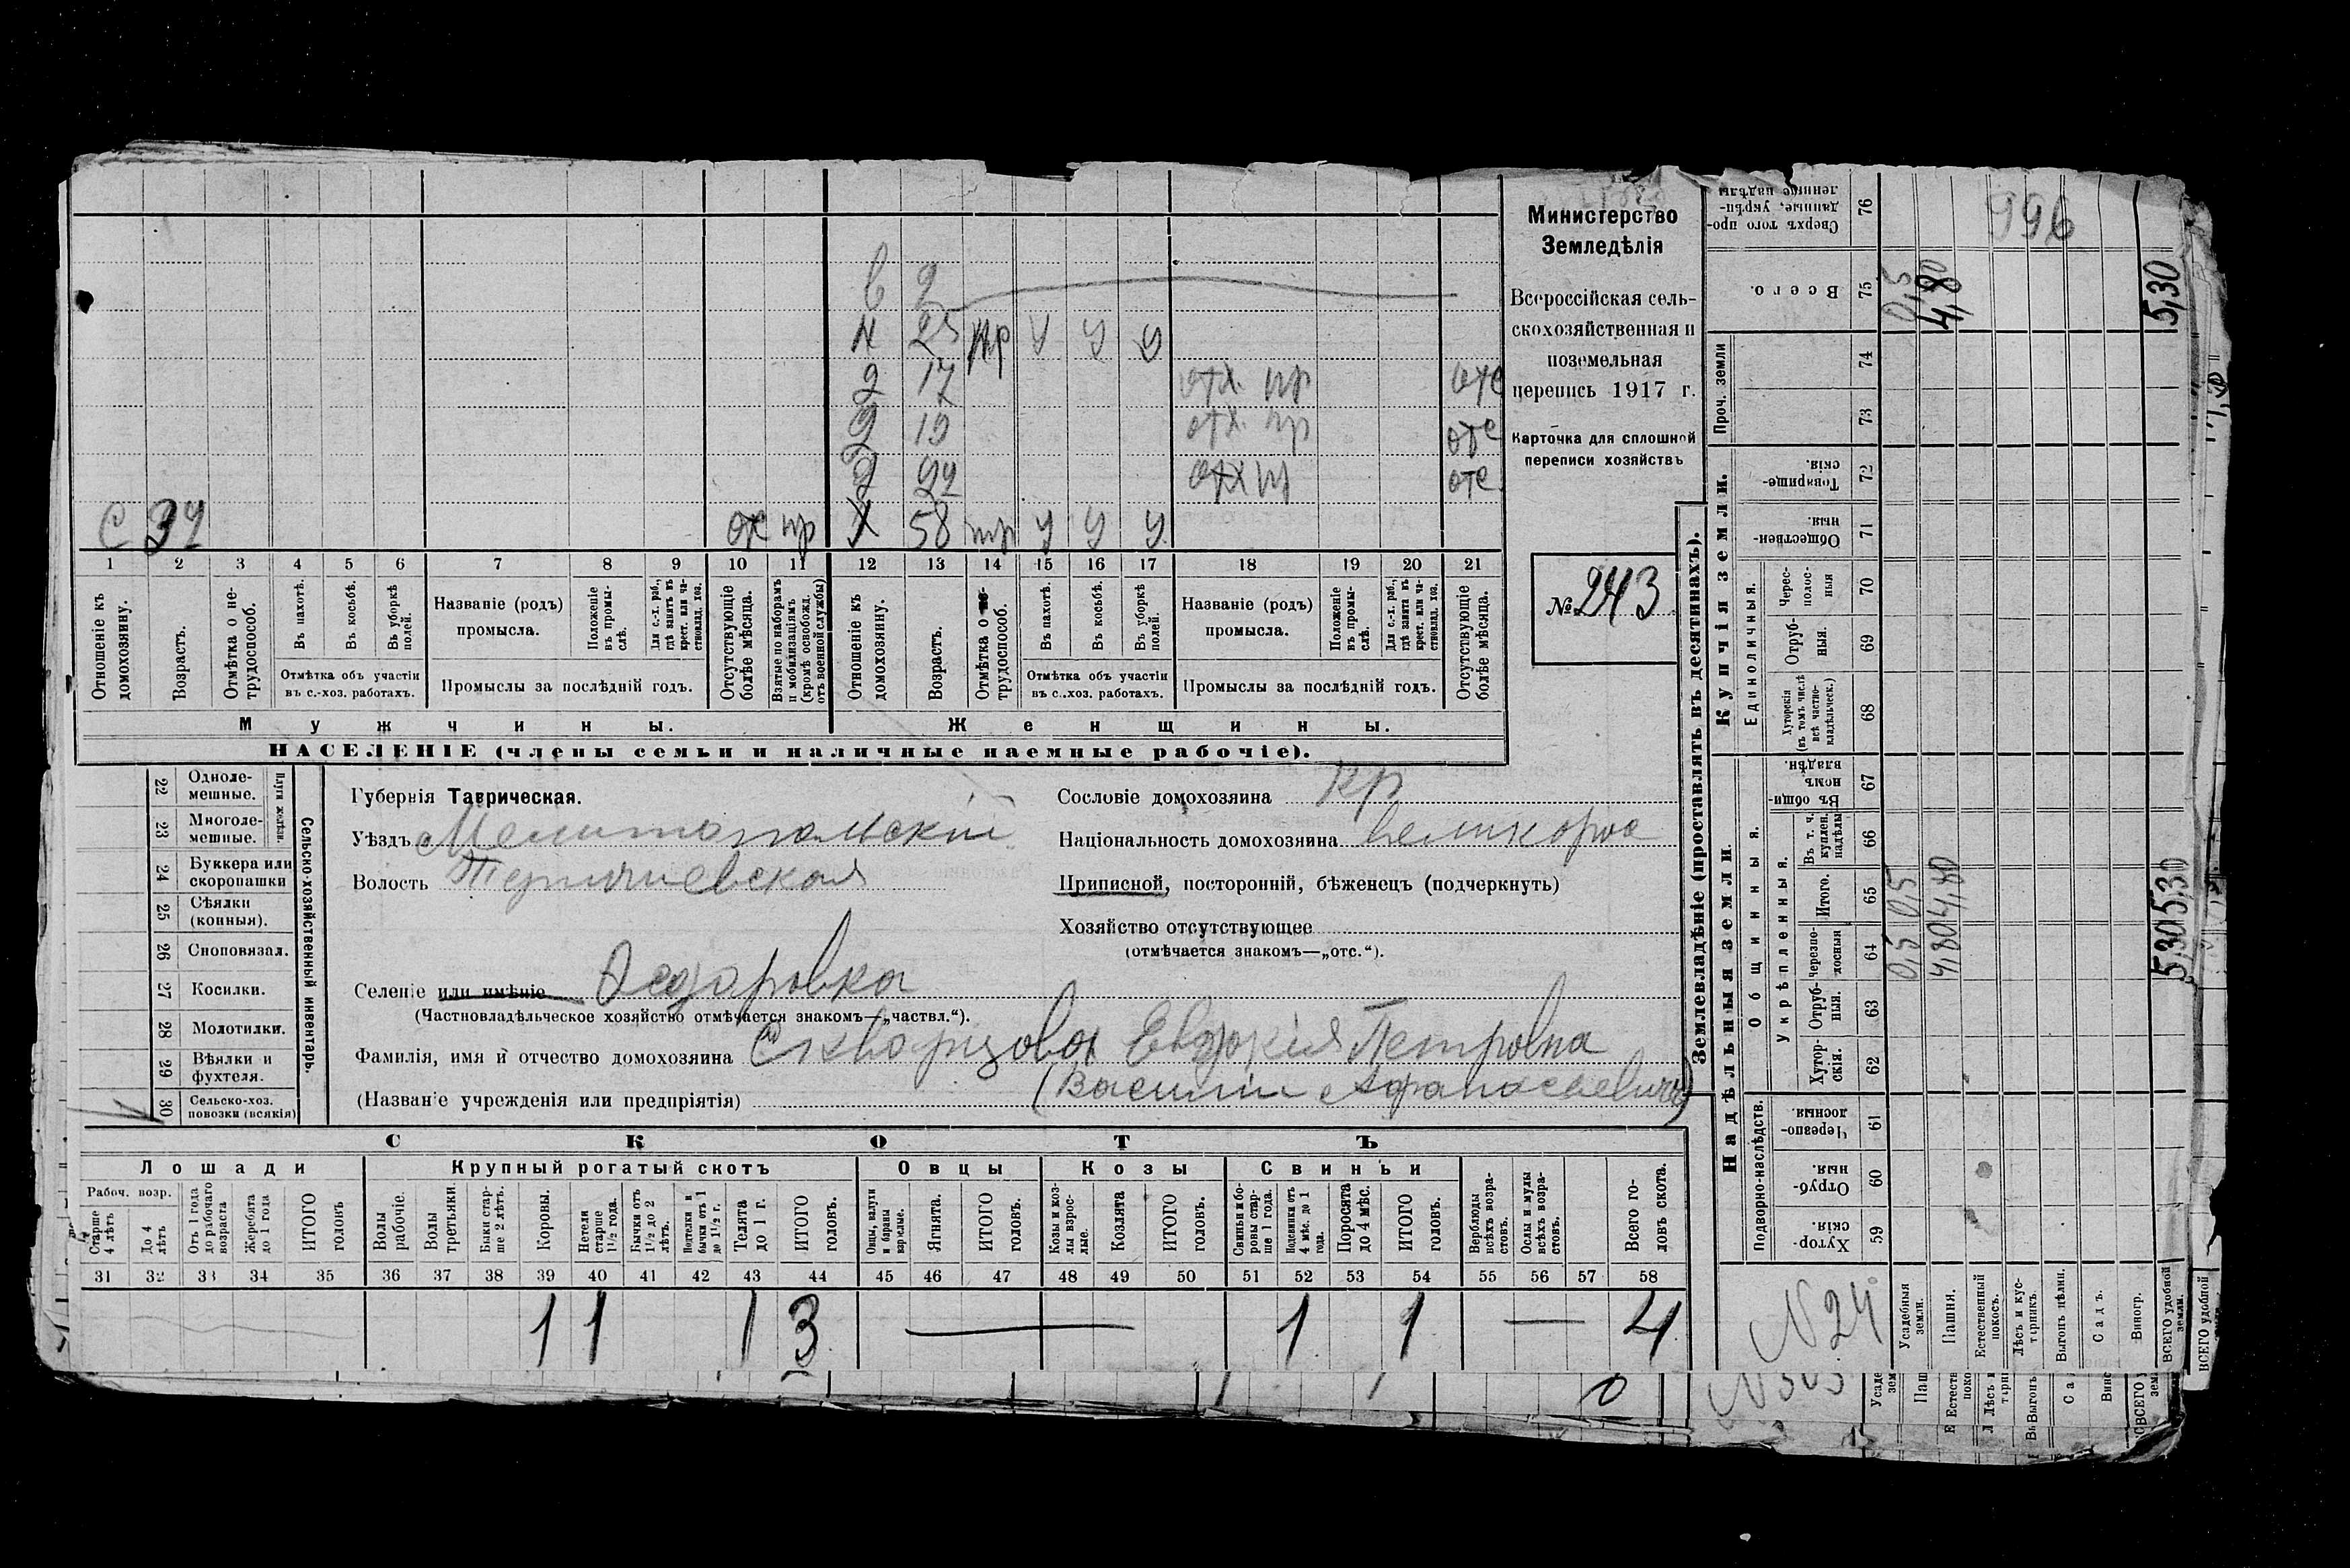 в 2
ж 25 пр у у у
д 17 отх. пр отс
д 19 отх. пр отс
д 22 отх пр отс
с 37 отс пр х 58 пр у у у
1 2 3 4 5 6 7 8 9 10 11 12 13 14 15 16 17 18 19 20 21
Отношеніе къ домохозяину.
Возрастъ.
Отмѣтка о не-трудоспособ.
Въ пахотѣ.
Въ косьбѣ.
Въ уборкѣ полей.
Отмѣтка объ участіи въ с.-хоз. работахъ.
Названіе (родъ) промысла.
Положеніе въ промы-слѣ.
Для с.-х. раб., гдѣ занятъ въ крест. или ча-стновлад. хоз.
Промыслы за послѣдній годъ.
Отсутствующіе болѣе мѣсяца.
Взятые по наборамъ и мобилизаціямъ (кромѣ освобожд. отъ военной службы)
Отношеніе къ домохозяину.
Возрастъ.
Отмѣтка о не-трудоспособ.
Въ пахотѣ.
Въ косьбѣ.
Въ уборкѣ полей.
Отмѣтка объ участіи въ с.-хоз. работахъ.
Названіе (родъ) промысла.
Положеніе въ промы-слѣ.
Для с.-х. раб., гдѣ занята въ крест. или ча-стновлад. хоз.
Промыслы за послѣдній годъ.
Отсутствующіе болѣе мѣсяца.
Мужчины. Женщины.
НАСЕЛЕНІЕ (члены семьи и наличные наемные рабочіе).
Министерство
Земледѣлія
Всероссійская сель-
скохозяйственная и
поземельная
перепись 1917 г.
Карточка для сплошной
переписи хозяйствъ
№ 243
22 Одноле-мешные.
23 Многоле-мешные.
Плуги желѣзн.
24 Буккера или скоропашки
25 Сѣялки (конныя).
26 Сноповязал.
27 Косилки.
28 Молотилки.
29 Вѣялки и фухтеля.
30 Сельско-хоз. повозки (всякія)
Сельско-хозяйственный инвентарь.
Губернія Таврическая.
Уѣздъ Мелитопольскій
Волость
Селеніе или имѣніе
(Частновладѣльческое хозяйство отмѣчается знакомъ—„частвл.“).
Фамилія, имя и отчество домохозяина Скворцова Евдокія Петровна
(Названіе учрежденія или предпріятія) (Василій Афанасьевичъ)
Сословіе домохозяина кр
Національность домохозяина великорос
Приписной, посторонній, бѣженецъ (подчеркнуть)
Хозяйство отсутствующее
(отмѣчается знакомъ—„отс.“).
СКОТЪ
Лошади Крупный рогатый скотъ Овцы Козы Свиньи
Рабоч. возр.
Старше 4 лѣтъ
До 4 лѣтъ
Отъ 1 года до рабочаго возраста
Жеребята до 1 года
ИТОГО головъ
Волы рабочіе.
Волы третьяки.
Быки стар-ше 2 лѣтъ.
Коровы.
Нетели старше 1½ года.
Бычки отъ 1½ до 2 лѣтъ.
Подтелки и бычки отъ 1 до 1½ г.
Телята до 1 г.
ИТОГО головъ.
Овцы, валухи и бараны взрослые.
Ягнята.
ИТОГО головъ.
Козы и коз-лы взрос-лые.
Козлята
ИТОГО головъ.
Свиньи и бо-ровы стар-ше 1 года.
Подсвинки отъ 4 мѣс. до 1 года.
Поросята до 4 мѣс.
ИТОГО головъ.
Верблюды всѣхъ возра-стовъ.
Ослы и мулы всѣхъ возра-стовъ.
Всего го-ловъ скота.
31 32 33 34 35 36 37 38 39 40 41 42 43 44 45 46 47 48 49 50 51 52 53 54 55 56 57 58
1 1 1 3 1 1 4
Землевладѣніе (проставлять въ десятинахъ).
Надѣльныя земли. Купчія земли. Проч. земли
Подворно-наслѣдств. Общинныя. Единоличныя.
Укрѣпленныя.
59 Хутор-скія.
60 Отруб-ныя.
61 Черезпо-лосныя.
62 Хутор-скія.
63 Отруб-ныя.
64 Черезпо-лосныя
65 Итого.
66 Въ т. ч. куплен. надѣлы
67 Въ общи-номъ владѣн.
68 Хуторскія (въ томъ числѣ всѣ частно-владѣльческ.)
69 Отруб-ныя.
70 Черес-полос-ныя
71 Обществен-ныя.
72 Товарище-скія.
73
74
75 Всего.
76 Сверхъ того про-данные, укрѣп-ленные надѣлы
N 24
Усадебныя земли. 0,5 0,5 0,5
Пашня. 4,80 4,80 4,80
Естественный покосъ.
Лѣсъ и кус-тарникъ.
Выгонъ цѣлин.
Садъ.
Виногр.
ВСЕГО удобной земли. 5,30 5,30 5,30
996
ВСЕГО удобной